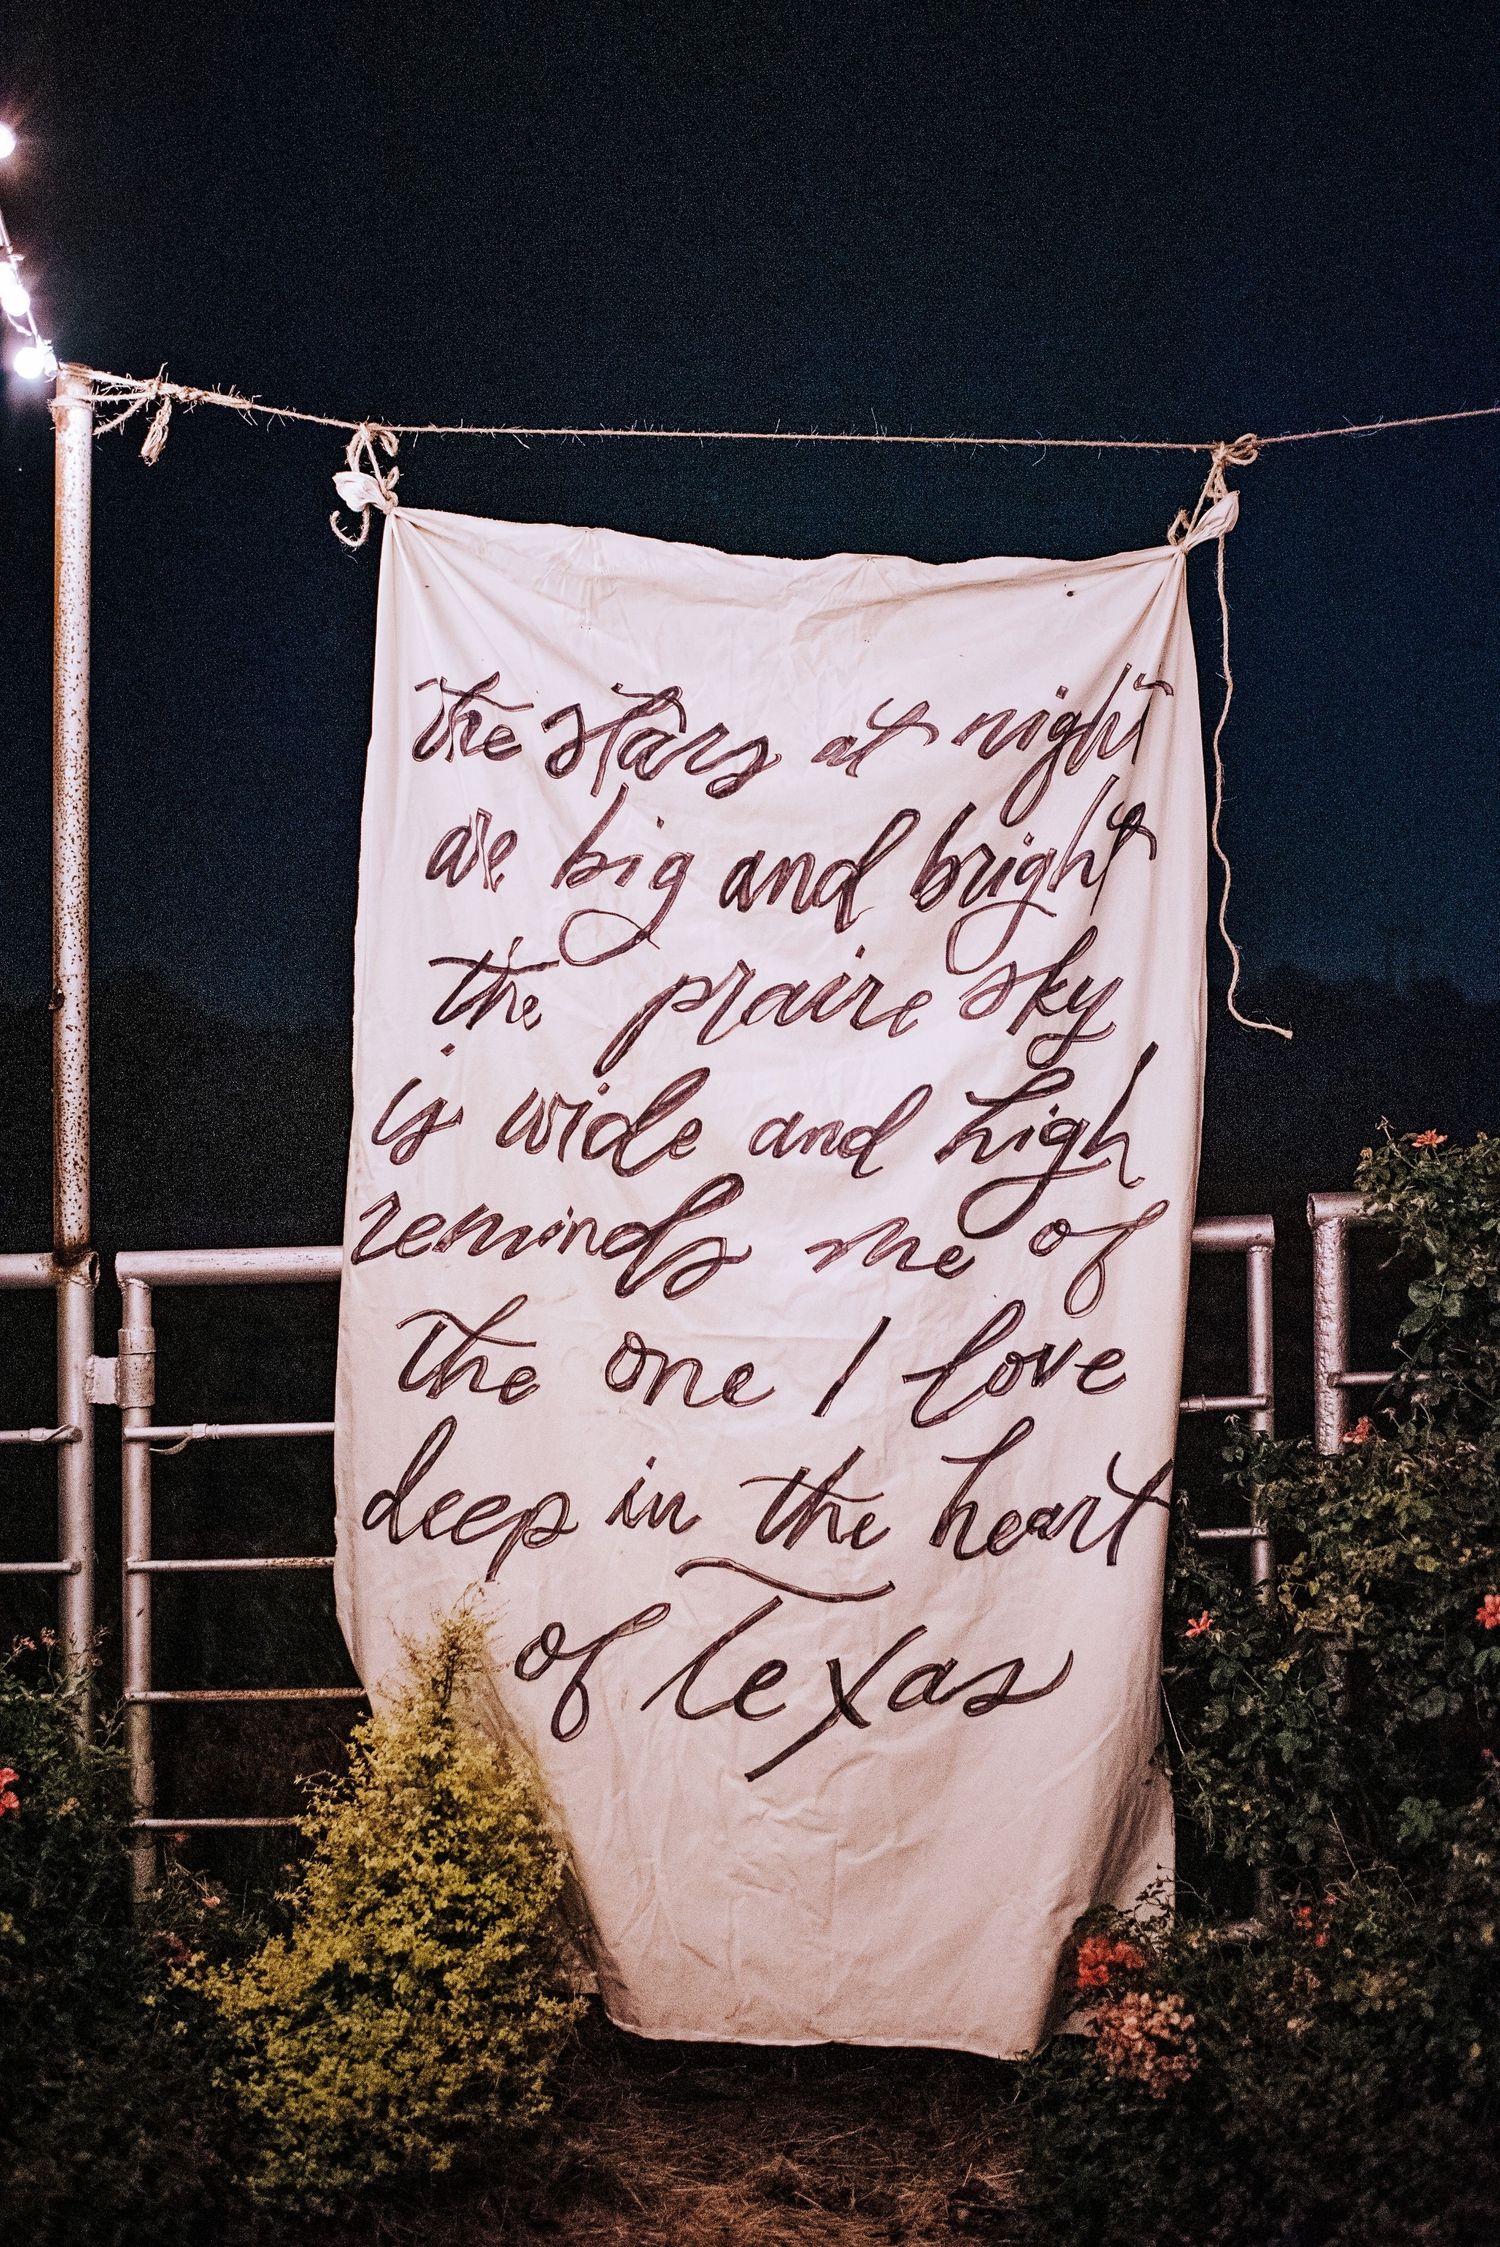 the stars at night
are big and bright
the praire sky
is wide and high
reminds me of
the one I love
deep in the heart
of Texas